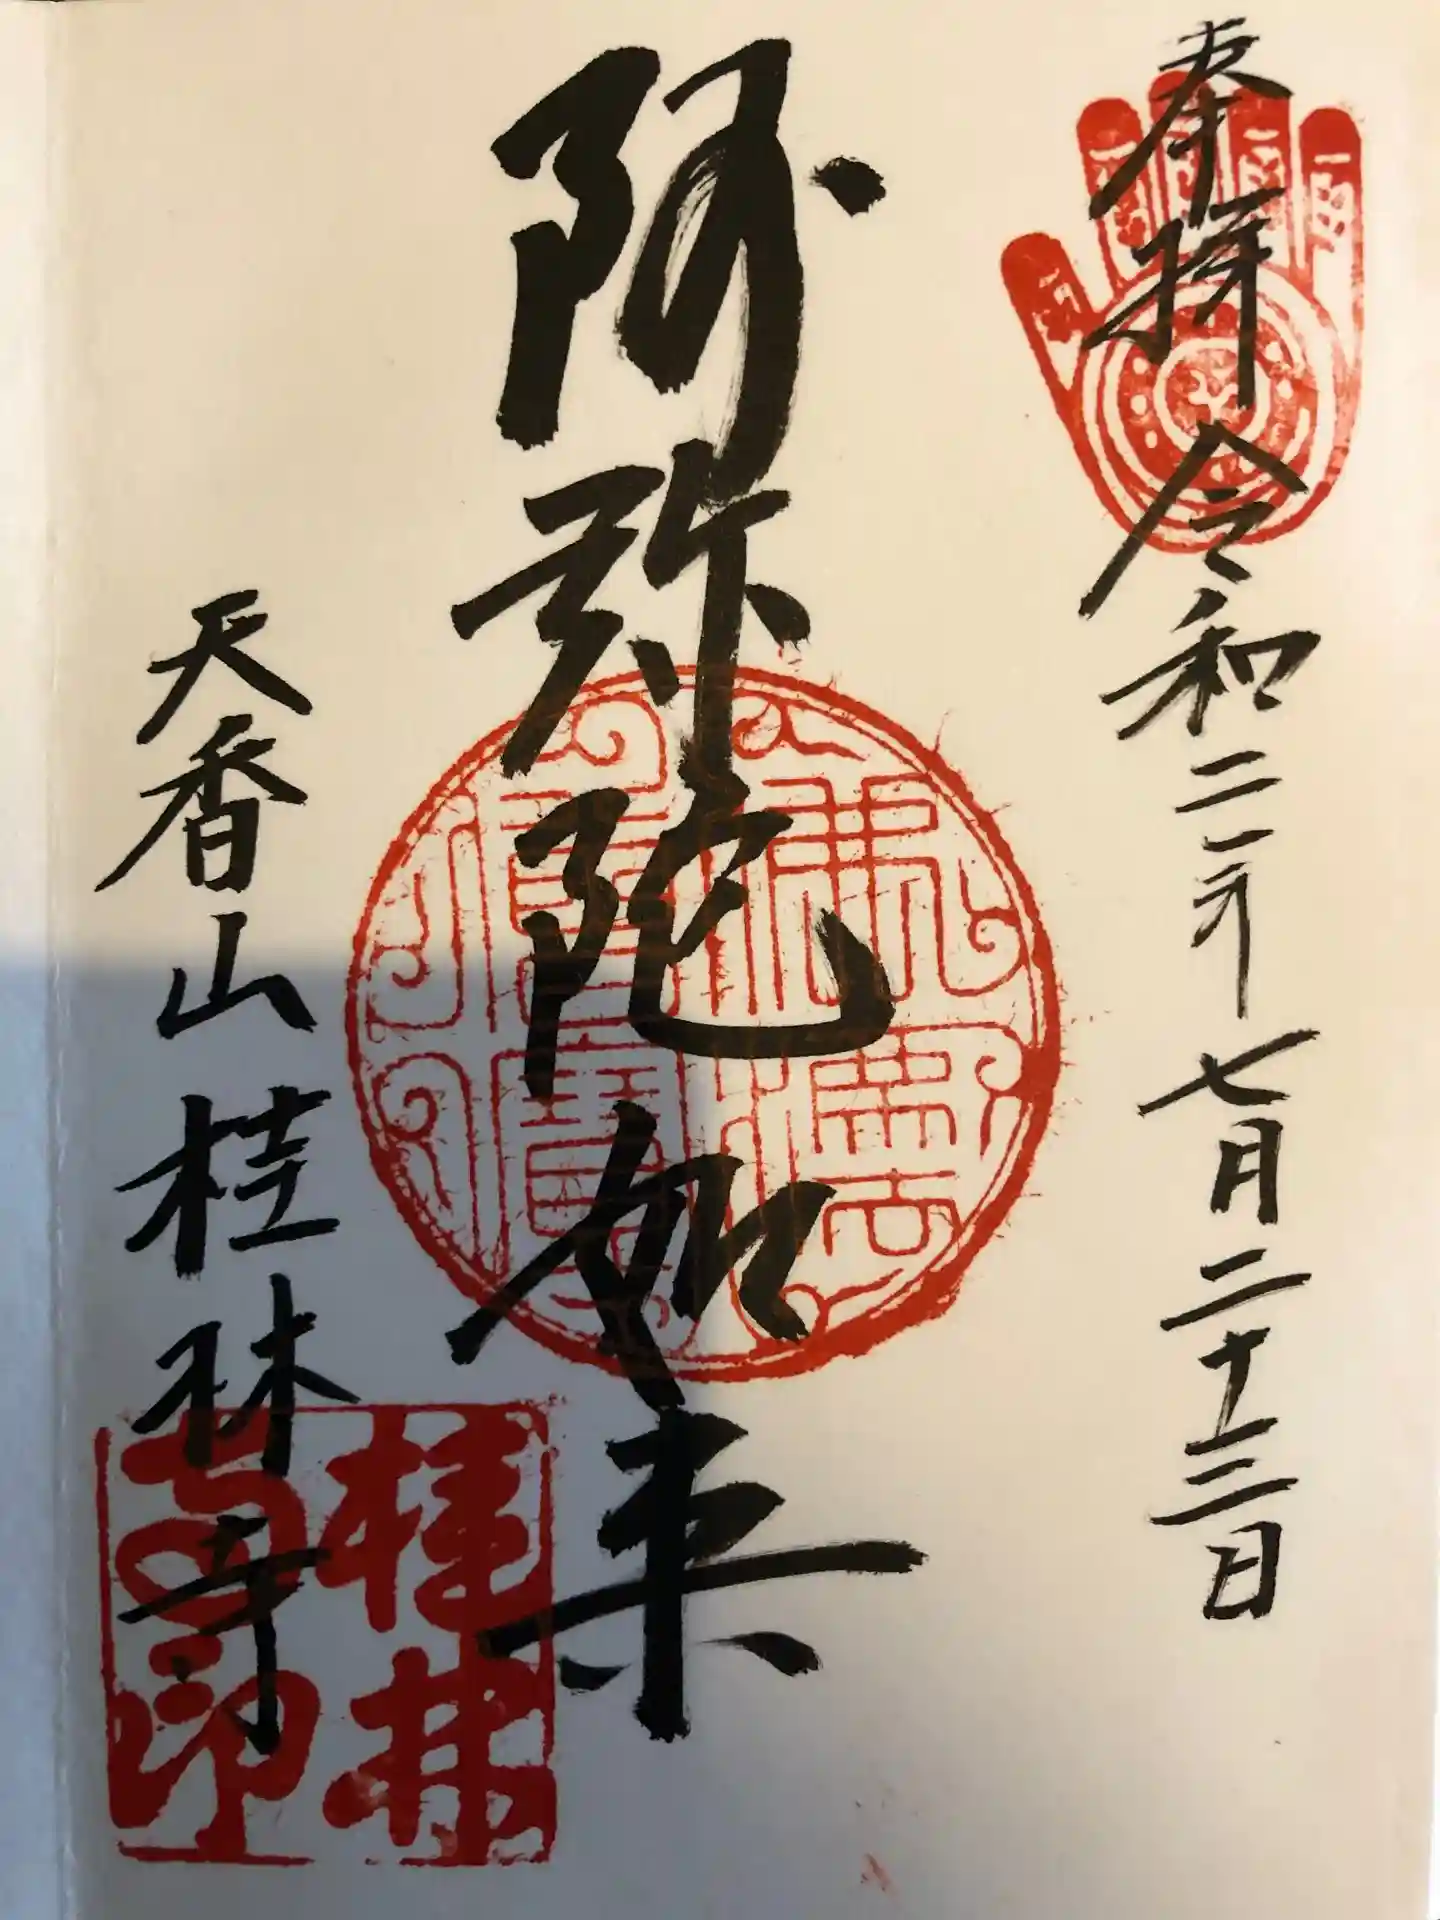 奉拝 令和二年七月二十三日
阿弥陀如来
天香山 桂林寺
佛法僧寶
桂林寺印